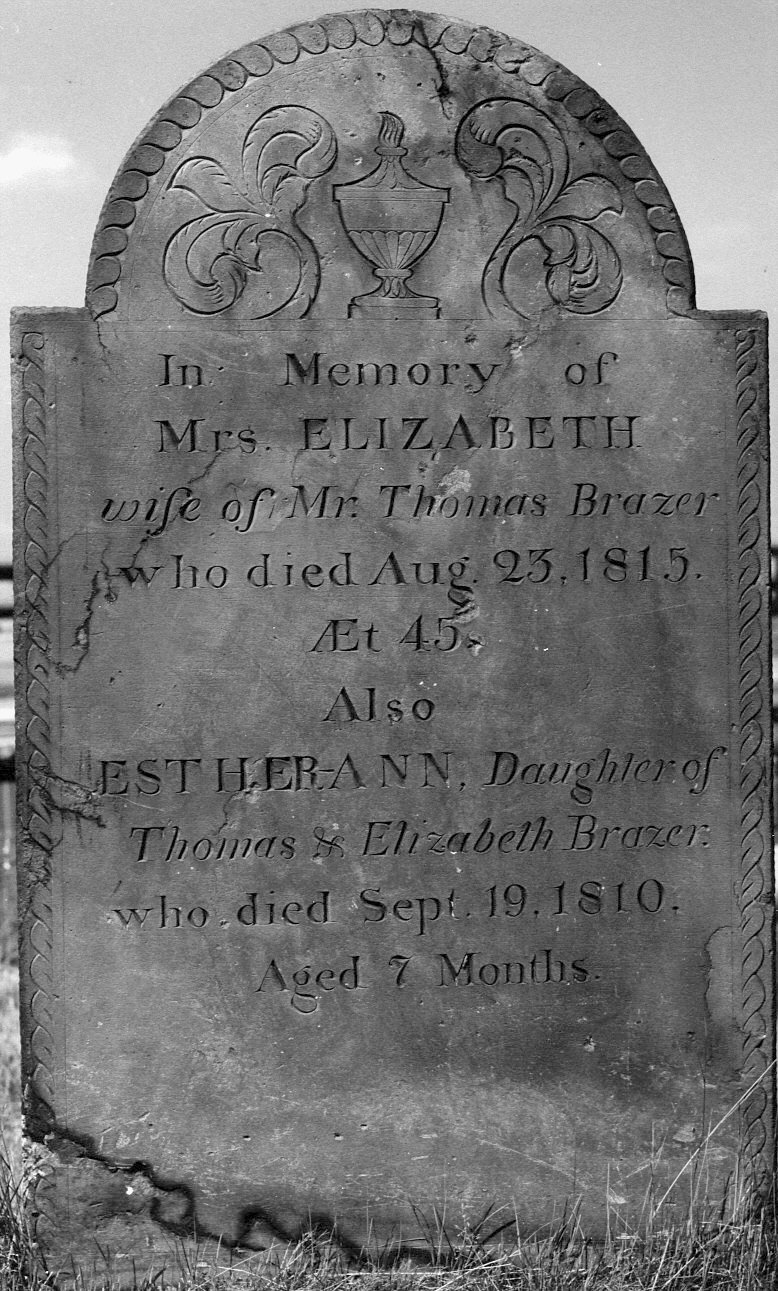 In Memory of
Mrs. ELIZABETH
wife of Mr. Thomas Brazer
who died Aug. 23, 1815.
Æt 45.
Also
ESTHER-ANN, Daughter of
Thomas & Elizabeth Brazer.
who died Sept. 19, 1810.
Aged 7 Months.